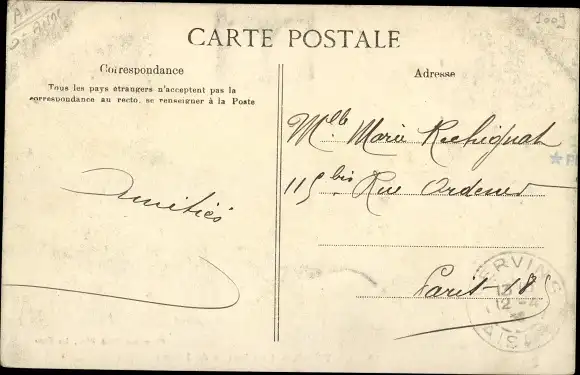 CARTE POSTALE
Correspondance
Tous les pays étrangers n'acceptent pas la
correspondance au recto, se renseigner à la Poste
Amitiés
Adresse
Mlle Marie Rochignat
115 bis Rue Ordener
Paris-18e